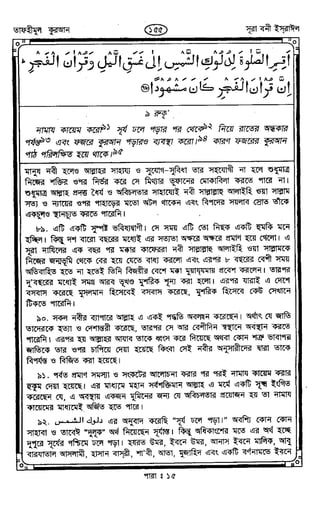 তাফহীমুল কুরআন
১৫৫
সূরা বনী ইসরাঈল
أَقِمِ الصَّلٰوةَ لِدُلُوكِ الشَّمْسِ إِلٰى غَسَقِ الَّيْلِ وَقُرْاٰنَ الْفَجْرِ
إِنَّ قُرْاٰنَ الْفَجْرِ كَانَ مَشْهُودًا
৯ রুকূ'
নামায কায়েম করো সূর্য ঢলে পড়ার পর থেকে নিয়ে রাতের অন্ধকার
পর্যন্ত এবং ফজরে কুরআন পড়ারও ব্যবস্থা করো। কারণ ফজরের কুরআন
পাঠ পরিলক্ষিত হয়ে থাকে।
মানুষ নবী হলেও আল্লাহর সাহায্য ও সুযোগ-সুবিধা তার সহযোগী না হলে শুধুমাত্র
নিজের শক্তির ওপর নির্ভর করে সে মিথ্যার তুফানের মোকাবিলা করতে পারে না।
শুধুমাত্র আল্লাহ প্রদত্ত ধৈর্য ও অবিচলতার সাহায্যেই নবী সাল্লাল্লাহু আলাইহি ওয়া সাল্লাম
সত্য ও ন্যায়ের ওপর পাহাড়ের মতো অটল থাকেন এবং বিপদের সয়লাব স্রোত তাঁকে
একচুলও স্থানচ্যুত করতে পারেনি।
৮৯. এটি একটি সুস্পষ্ট ভবিষ্যদ্বাণী। সে সময় এটি তো নিছক একটি হুমকি মনে
হচ্ছিল। কিন্তু দশ বারো বছরের মধ্যেই এর সত্যতা অক্ষরে অক্ষরে প্রমাণ হয়ে গেলো। এ
সূরা নাযিলের এক বছর পর মক্কার কাফেররা নবী সাল্লাল্লাহু আলাইহি ওয়া সাল্লামকে
নিজের জন্মভূমি থেকে বের হয়ে যেতে বাধ্য করলো এবং এরপর ৮ বছরের বেশী সময়
অতিবাহিত হতে না হতেই তিনি বিজয়ীর বেশে মক্কা মুয়াযযমায় প্রবেশ করলেন। তারপর
দু'বছরের মধ্যেই সমগ্র আরব ভূখণ্ড মুশরিক শূন্য করা হলো। এরপর যারাই এ দেশে
বসবাস করেছে মুসলমান হিসেবেই বসবাস করেছে, মুশরিক হিসেবে কেউ সেখানে
টিকতে পারেনি।
৯০. সকল নবীর ব্যাপারে আল্লাহ এ একই পদ্ধতি অবলম্বন করেছেন। অর্থাৎ যে জাতি
তাদেরকে হত্যা ও দেশান্তরী করেছে, তারপর সে আর বেশীদিন স্বস্থানে অবস্থান করতে
পারেনি। এরপর হয় আল্লাহর আযাব তাকে ধ্বংস করে দিয়েছে অথবা কোন শত্রু ভাবাপন্ন
জাতিকে তার ওপর চাপিয়ে দেয়া হয়েছে কিংবা সেই নবীর অনুসারীদের দ্বারা তাকে
বিপর্যস্ত ও বিজিত করা হয়েছে।
৯১. পর্বত প্রমাণ সমস্যা ও সংকটের আলোচনা করার পর পরই নামায কায়েম করার
হুকুম দেয়া হয়েছে। এর মাধ্যমে মহান সর্বশক্তিমান আল্লাহ এ মর্মে একটি সূক্ষ্ম ইংগিত
করেছেন যে, এ অবস্থায় একজন মুমিনের জন্য যে অবিচলতার প্রয়োজন হয় তা নামায
কায়েমের মাধ্যমেই অর্জিত হতে পারে।
৯২. دلوك الشمس এর অনুবাদ করেছি "সূর্য ঢলে পড়া।" অবশ্যি কোন কোন
সাহাবা ও তাবেঈ "দুলূক" অর্থ নিয়েছেন সূর্যাস্ত। কিন্তু অধিকাংশের মতে এর অর্থ হচ্ছে
দুপুরে সূর্যের পশ্চিমে ঢলে পড়া। হযরত উমর, ইবনে উমর, আনাস ইবনে মালিক, আবু
বারযাতাল আসলামী, হাসান বাসরী, শা'বী, আতা, মুজাহিদ এবং একটি বর্ণনামতে ইবনে
পারা : ১৫